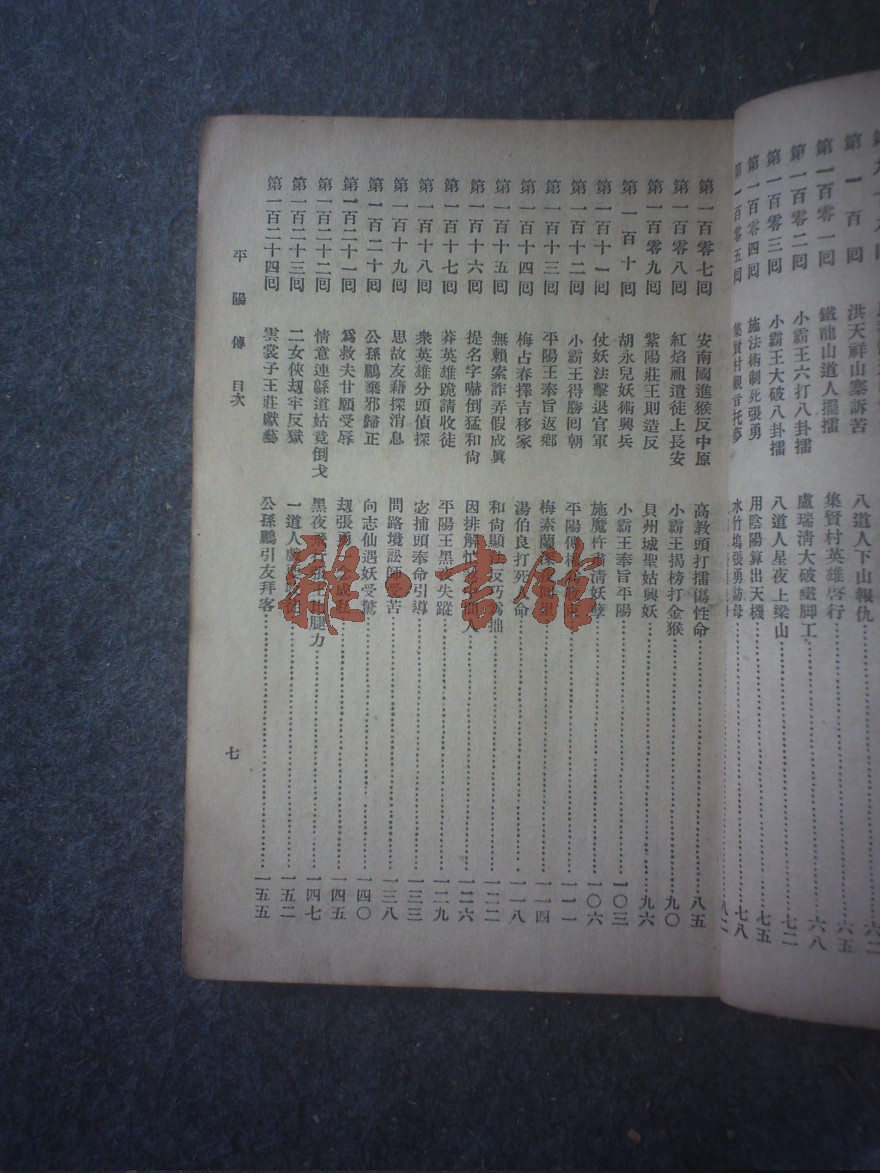 第一百回 洪天祥山寨訴苦 八道人下山報仇 六五
第一百零一回 鐵龍山道人擺擂 集賢村英雄啓行 六八
第一百零二回 小霸王六打八卦擂 盧瑞清大破鐵脚工 七二
第一百零三回 小霸王大破八卦擂 八道人星夜上梁山 七五
第一百零四回 施法術制死張勇 用陰陽算出天機 七八
第一百零五回 集賢村觀音托夢 水竹塢張勇訪母
第一百零七回 安南國進猴反中原 高教頭打擂傷性命 八五
第一百零八回 紅焰祖遣徒上長安 小霸王揭榜打金猴 九〇
第一百零九回 紫陽莊王則造反 貝州城聖姑興妖 九六
第一百十回 胡永兒妖術興兵 小霸王奉旨平陽 一〇三
第一百十一回 仗妖法擊退官軍 施魔杵肅清妖孽 一〇六
第一百十二回 小霸王得勝回朝 平陽傳 一一一
第一百十三回 平陽王奉旨返鄉 梅素蘭 一一四
第一百十四回 梅占春擇吉移家 湯伯良打死 命 一一八
第一百十五回 無賴索詐弄假成眞 和尚顯 反巧爲拙 一二二
第一百十六回 提名字嚇倒猛和尚 因排解 人 一二六
第一百十七回 莽英雄跪請收徒 平陽王黑 失蹤 一二九
第一百十八回 衆英雄分頭偵探 宓捕頭奉命引導 一三三
第一百十九回 思故友藉探消息 問路境訟師受苦 一三八
第一百二十回 公孫鵬棄邪歸正 向志仙遇妖受驚 一四〇
第一百二十一回 爲救夫甘願受辱 刼張 成私 一四五
第一百二十二回 情意連緜道姑竟倒戈 黑夜 腿力 一四七
第一百二十三回 二女俠刼牢反獄 一道人 一五二
第一百二十四回 雲裳子王莊獻藝 公孫鵬引友拜客 一五五
平陽傳 目次 七
雅·書館